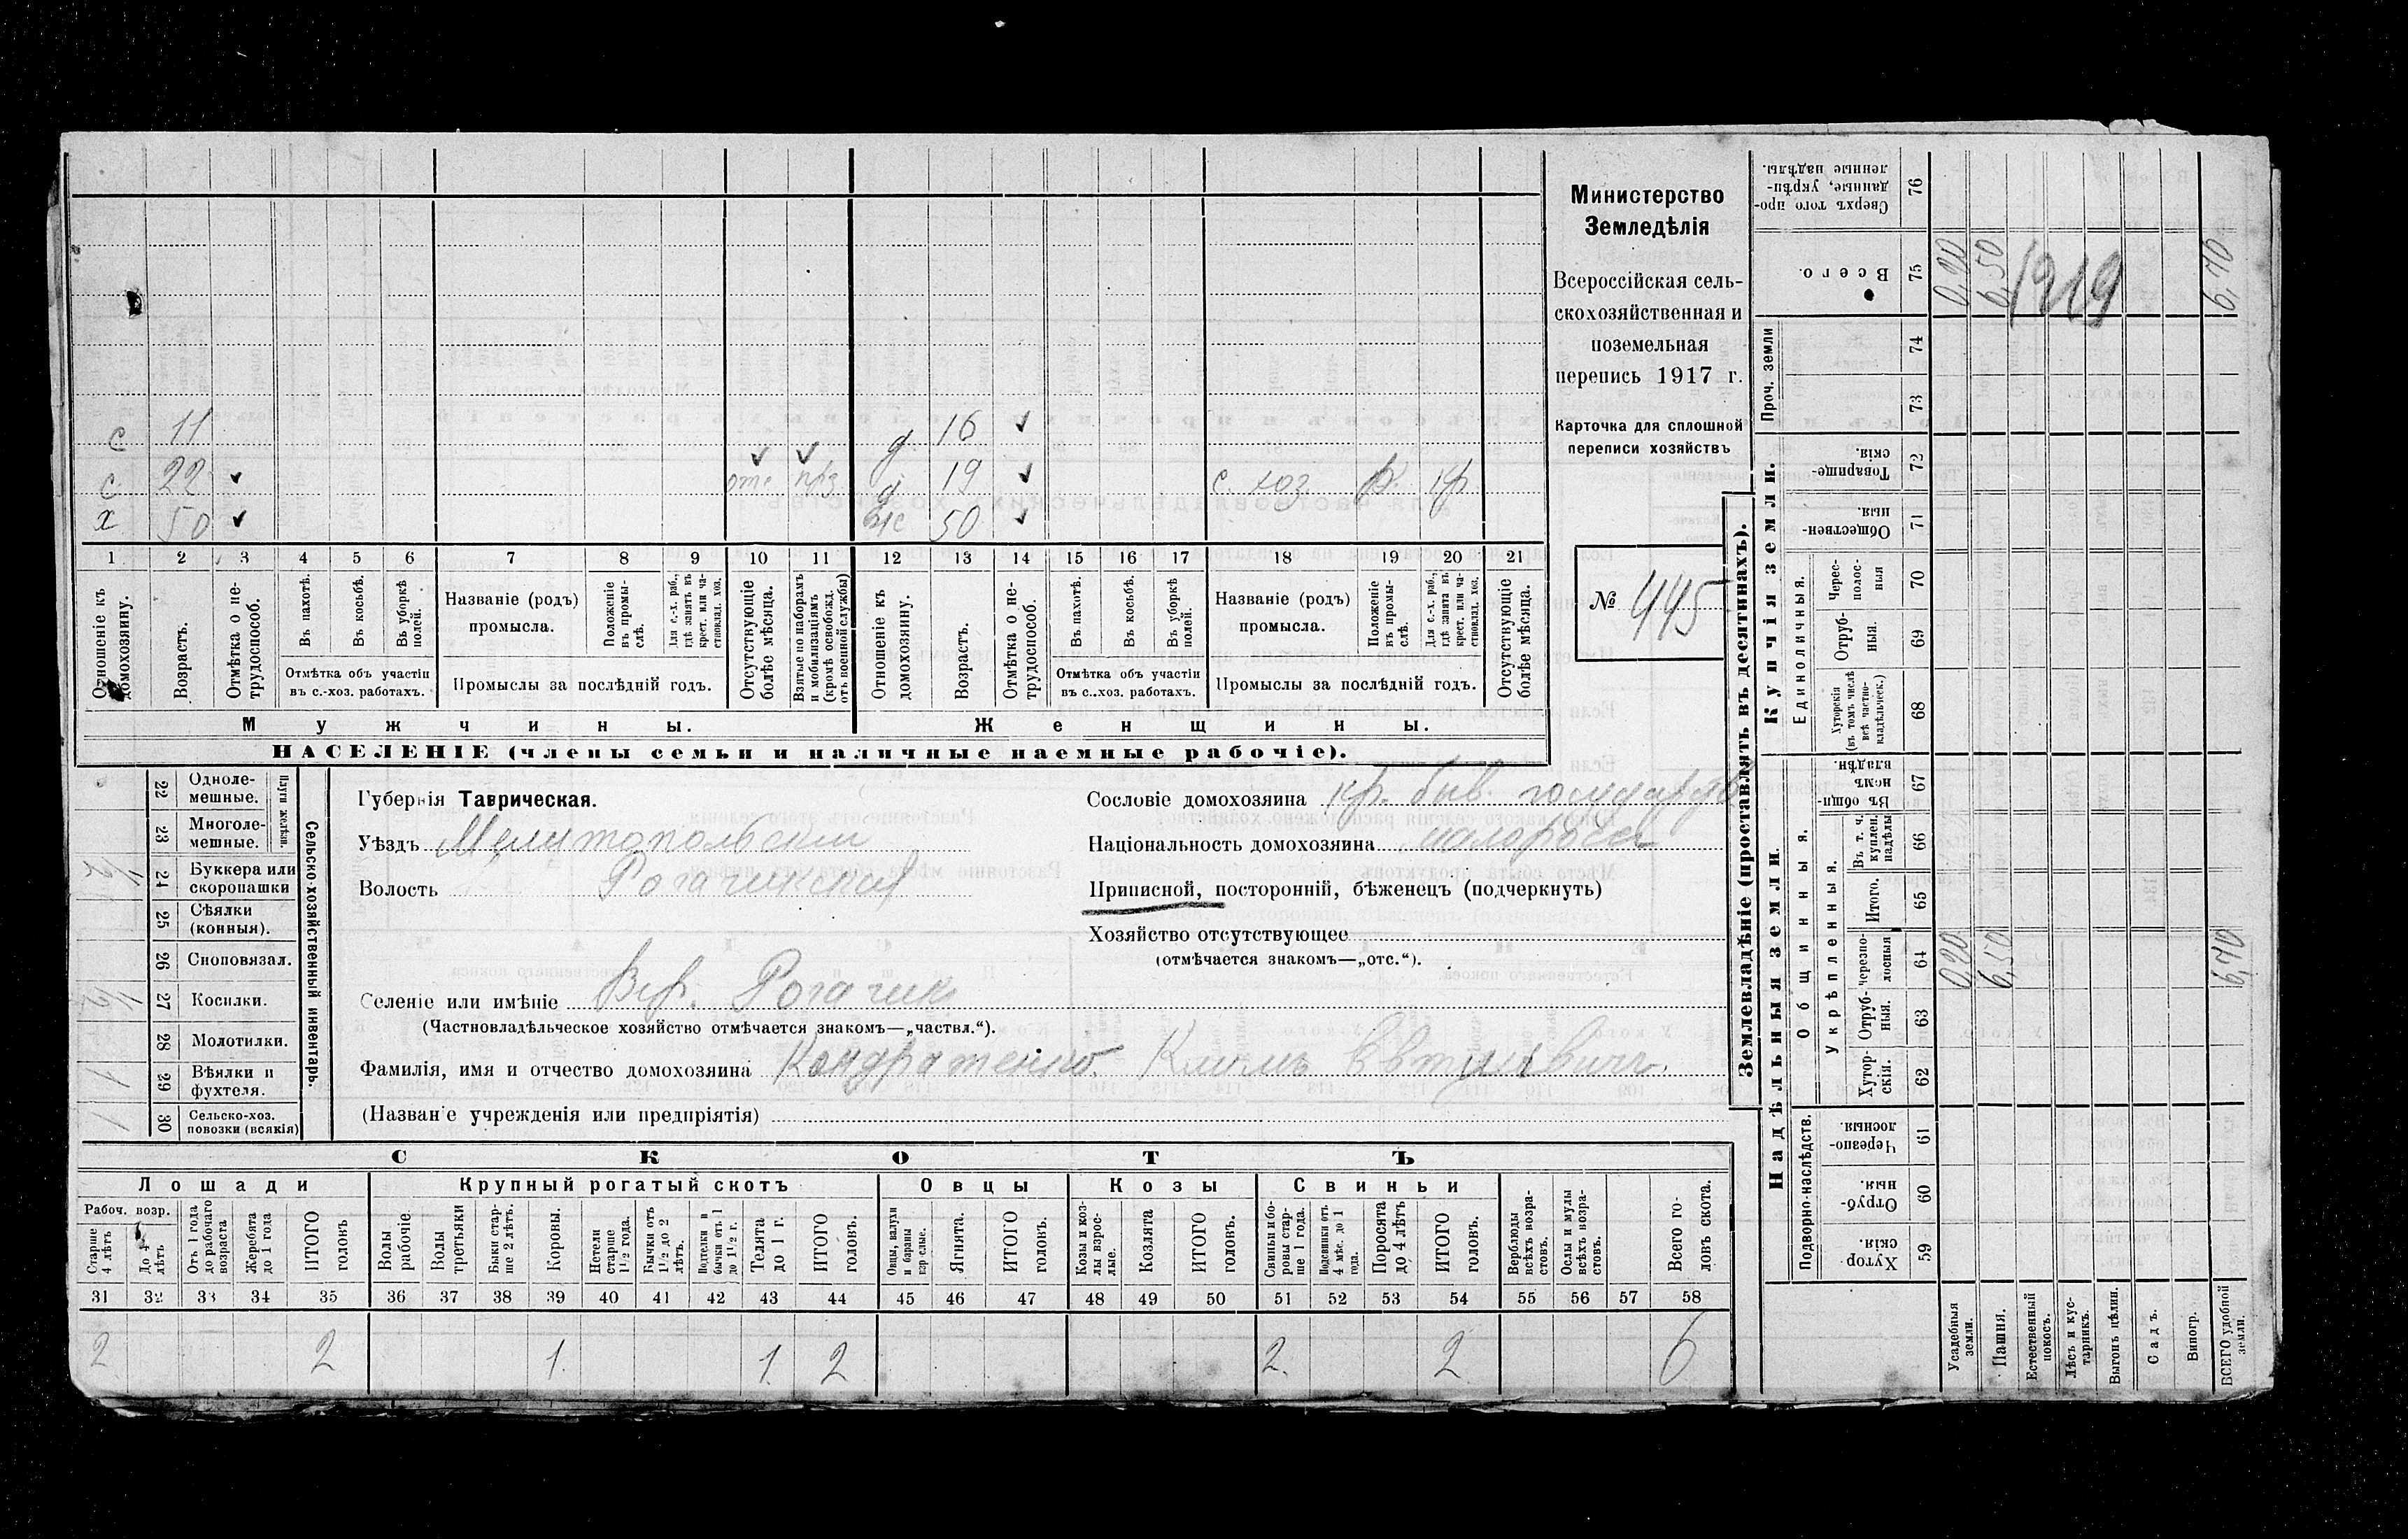 с 11 д 16 ✓
с 22 ✓ ✓ отс ✓ прз д 19 ✓ с. хоз р. кр
х 50 ✓ ж 50 ✓
1 2 3 4 5 6 7 8 9 10 11 12 13 14 15 16 17 18 19 20 21
Отношеніе къ домохозяину.
Возрастъ.
Отмѣтка о не-трудоспособ.
Въ пахотѣ.
Въ косьбѣ.
Въ уборкѣ полей.
Отмѣтка объ участіи
въ с.-хоз. работахъ.
Названіе (родъ)
промысла.
Положеніе въ промы-слѣ.
Для с.-х. раб., гдѣ занятъ въ крест. или ча-стновлад. хоз.
Промыслы за послѣдній годъ.
Отсутствующіе болѣе мѣсяца.
Взятые по наборамъ и мобилизаціямъ (кромѣ освобожд. отъ военной службы)
Отношеніе къ домохозяину.
Возрастъ.
Отмѣтка о не-трудоспособ.
Въ пахотѣ.
Въ косьбѣ.
Въ уборкѣ полей.
Отмѣтка объ участіи
въ с.-хоз. работахъ.
Названіе (родъ)
промысла.
Положеніе въ промы-слѣ.
Для с.-х. раб., гдѣ занята въ крест. или ча-стновлад. хоз.
Промыслы за послѣдній годъ.
Отсутствующіе болѣе мѣсяца.
Мужчины.
Женщины.
НАСЕЛЕНІЕ (члены семьи и наличные наемные рабочіе).
Министерство
Земледѣлія
Всероссійская сель-
скохозяйственная и
поземельная
перепись 1917 г.
Карточка для сплошной
переписи хозяйствъ
№ 445
22 Одноле-мешные.
23 Многоле-мешные.
Плуги желѣзн.
24 Буккера или скоропашки 1/2
25 Сѣялки (конныя).
26 Сноповязал.
27 Косилки. 1/2
28 Молотилки.
29 Вѣялки и фухтеля. 1
30 Сельско-хоз. повозки (всякія) 1
Сельско-хозяйственный инвентарь.
Губернія Таврическая.
Уѣздъ Мелитопольскій
Волость Рогачикская
Селеніе или имѣніе Вер. Рогачик
(Частновладѣльческое хозяйство отмѣчается знакомъ—„частвл.“).
Фамилія, имя и отчество домохозяина Кондратенко Климъ Евтуховичъ.
(Названіе учрежденія или предпріятія)
Сословіе домохозяина кр. быв. государств
Національность домохозяина малороссъ
Приписной, посторонній, бѣженецъ (подчеркнуть)
Хозяйство отсутствующее
(отмѣчается знакомъ—„отс.“).
СКОТЪ
Лошади
Крупный рогатый скотъ
Овцы
Козы
Свиньи
Рабоч. возр.
Старше 4 лѣтъ
До 4 лѣтъ
Отъ 1 года до рабочаго возраста
Жеребята до 1 года
ИТОГО головъ
Волы рабочіе
Волы третьяки
Быки стар-ше 2 лѣтъ.
Коровы.
Нетели старше 1 1/2 года.
Бычки отъ 1 1/2 до 2 лѣтъ.
Подтелки и бычки отъ 1 до 1 1/2 г.
Телята до 1 г.
ИТОГО головъ.
Овцы, валухи и бараны взрослые.
Ягнята.
ИТОГО головъ.
Козы и коз-лы взрос-лые.
Козлята
ИТОГО головъ.
Свиньи и бо-ровы стар-ше 1 года.
Подсвинки отъ 4 мѣс. до 1 года.
Поросята до 4 лѣтъ
ИТОГО головъ.
Верблюды всѣхъ возра-стовъ.
Ослы и мулы всѣхъ возра-стовъ.
Всего го-ловъ скота.
31 32 33 34 35 36 37 38 39 40 41 42 43 44 45 46 47 48 49 50 51 52 53 54 55 56 57 58
2 2 1. 1. 2 2. 2. 6
Землевладѣніе (проставлять въ десятинахъ).
Купчія земли.
Надѣльныя земли.
Сверхъ того про-данные, укрѣп-ленные надѣлы. 76
Всего. 75 0,20 6,50 6,70
1919
Проч. земли 74
73
Товарище-скія. 72
Обществен-ныя. 71
Единоличныя.
Черес-полос-ныя 70
Отруб-ныя. 69
Хуторскія (въ томъ числѣ всѣ частно-владѣльческ.) 68
Общинныя.
Въ общин-номъ владѣн. 67
Укрѣпленныя.
Въ т. ч. куплен. надѣлы 66
Итого. 65
черезпо-лосныя 64 0,20 6,50 6,70
Отруб-ныя. 63
Хутор-скія. 62
Подворно-наслѣдств.
Черезпо-лосныя. 61
Отруб-ныя. 60
Хутор-скія. 59
Усадебныя земли.
Пашня.
Естественный покосъ.
Лѣсъ и кус-тарникъ.
Выгонъ цѣлин.
Садъ.
Виногр.
ВСЕГО удобной земли.